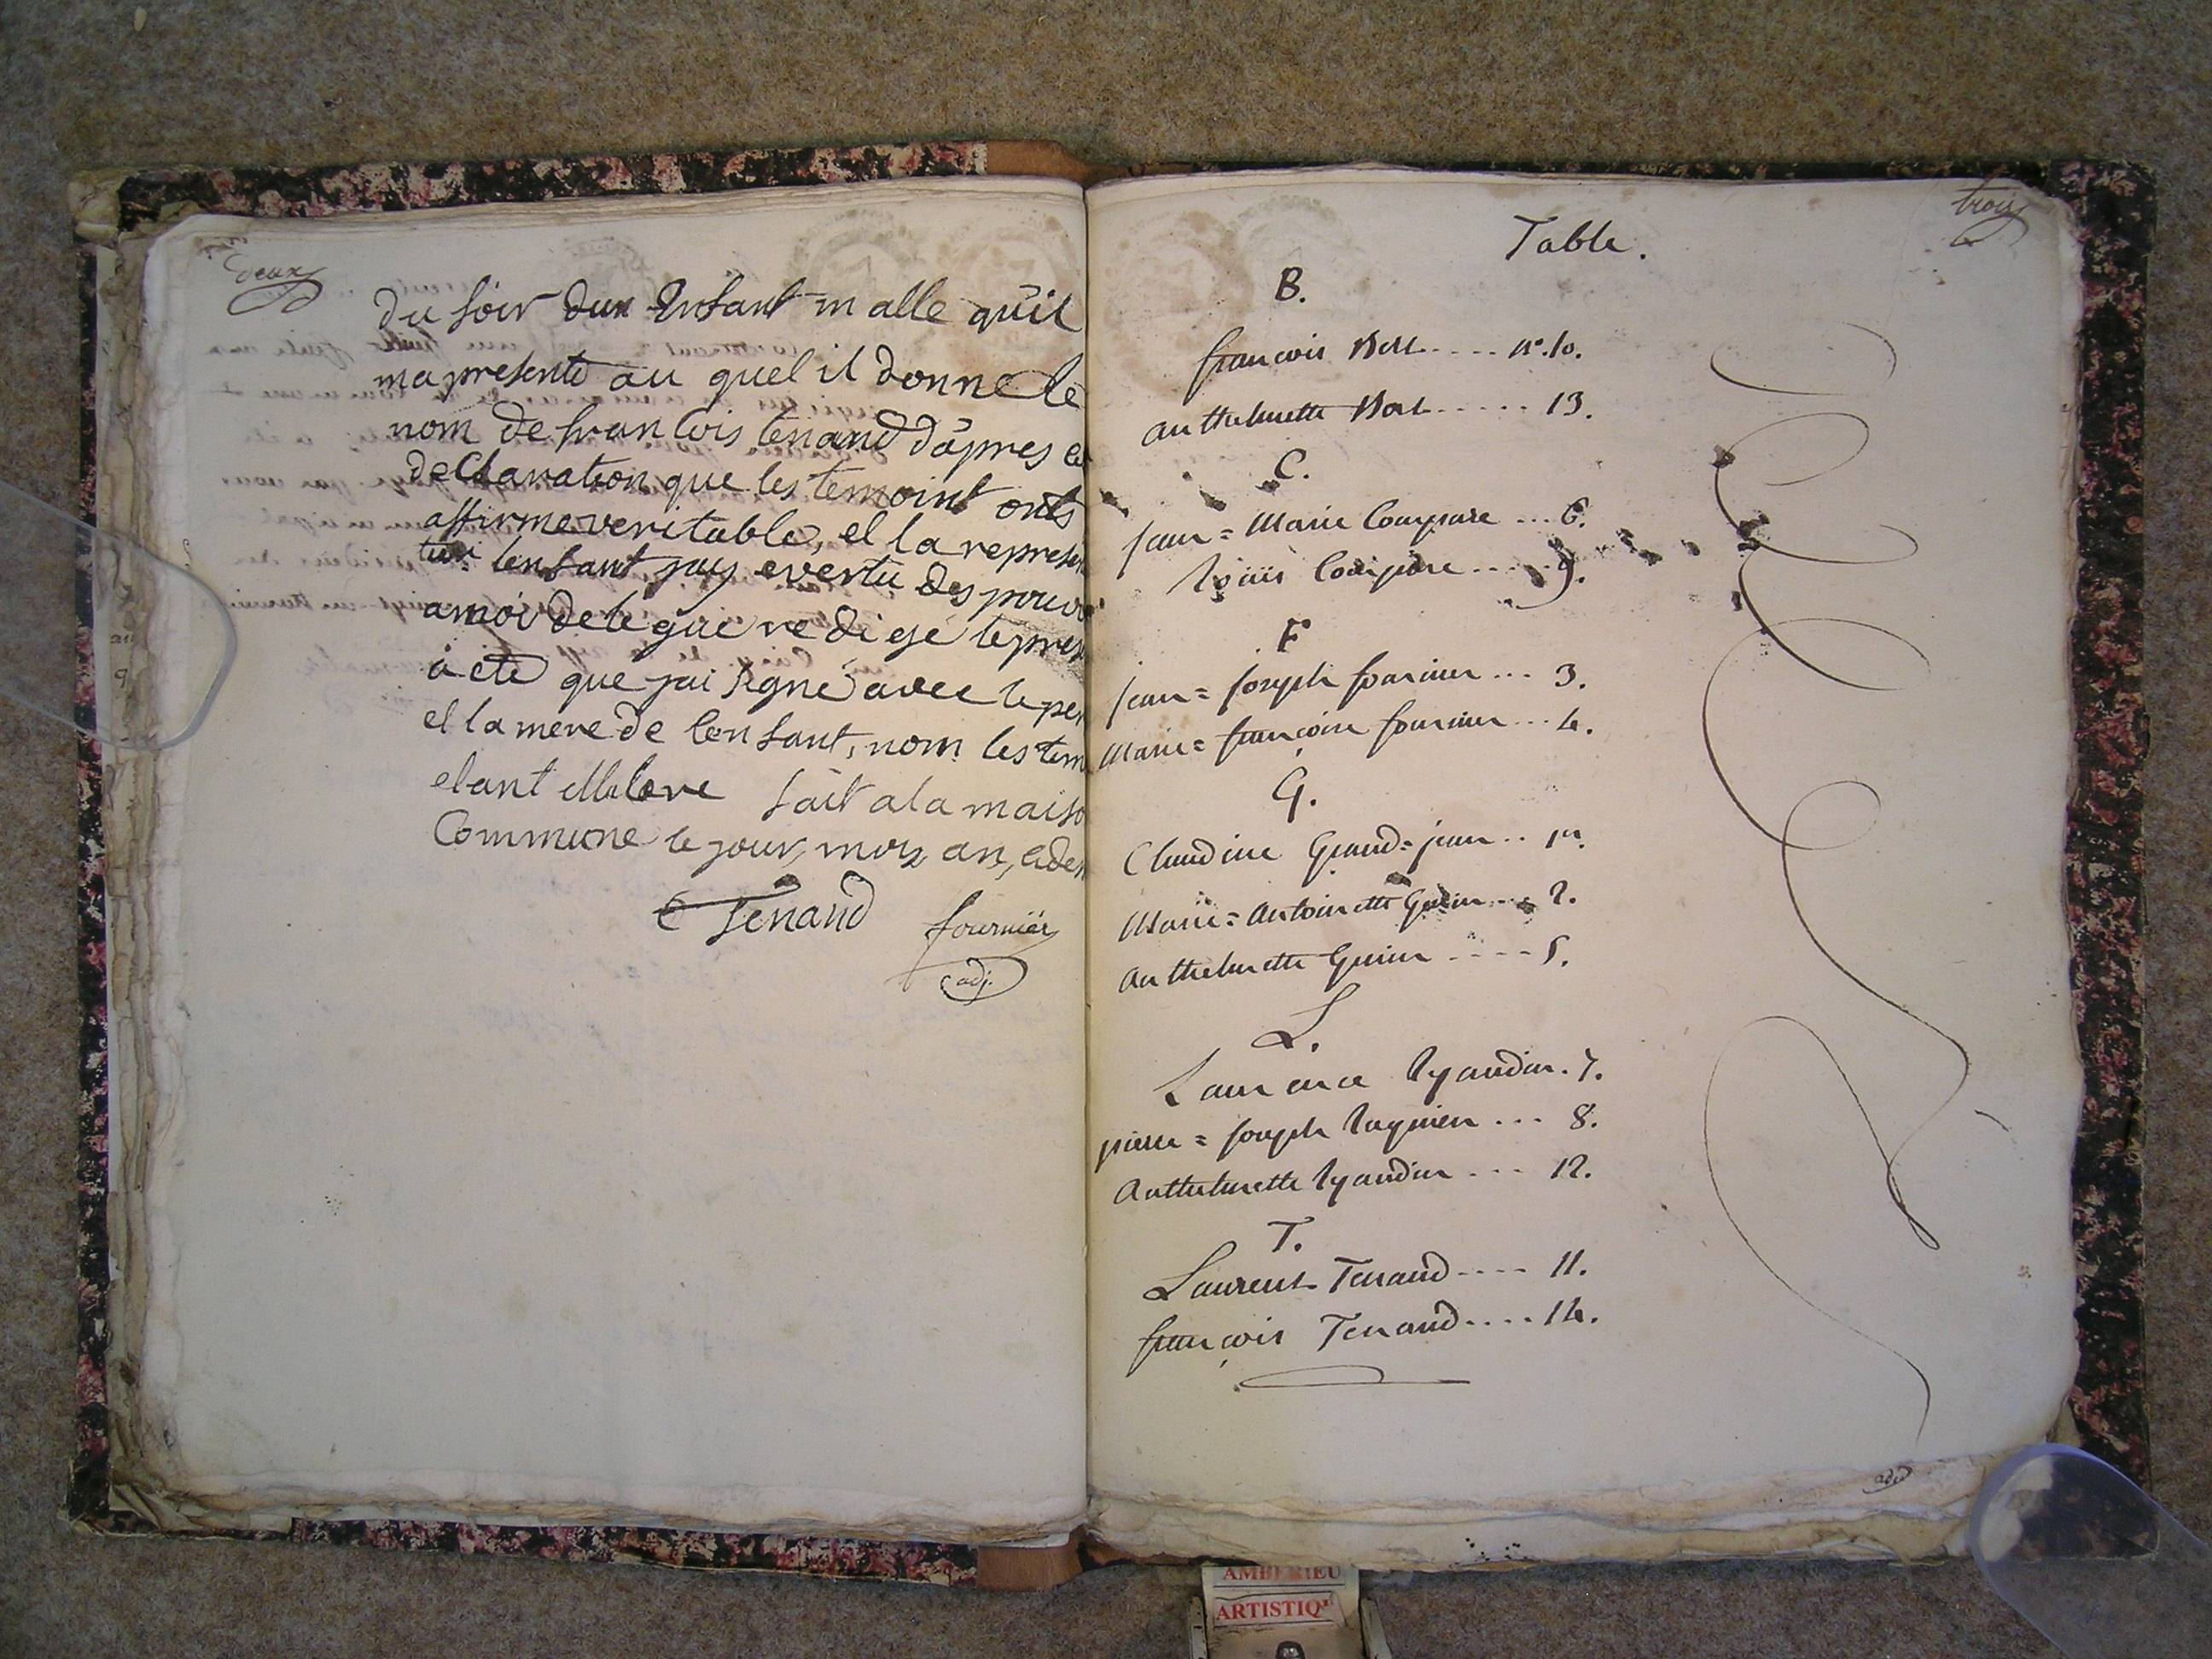 deux
du soir dun Enfant malle quil
ma presenté au quel il donne le
nom de francois tenand dapres
declaration que les temoint onts
affirme veritable, et la represen
lenfant jay evertu des pouvoi
a moi delegúe redigé le pres
àcte que jai signé avec le per
et la mere de lenfant, nom les tem
etant fait a la maiso
Commune le jour, mois an,
C Tenand
fournier
adj.
trois
Table.
B.
françois Bort ..... n°. 10.
anthelmette Bort ..... 13.
C.
jean = Marie Compare ... 6.
Loüis Compare ..... 9.
F
jean = joseph fournier ... 3.
Marie = françoise fournier ... 4.
G.
Claudine Grand = jean .. 1er.
Marie = antoinette Guerin ... 2.
anthelmette Guerin .... 5.
L.
Laurence Lyaudin . 7.
pierre = joseph ... 8.
anthelmette Lyaudin ... 12.
T.
Laurent Tenand .... 11.
françois Tenand .... 14.
AMBERIEU
ARTISTIQ